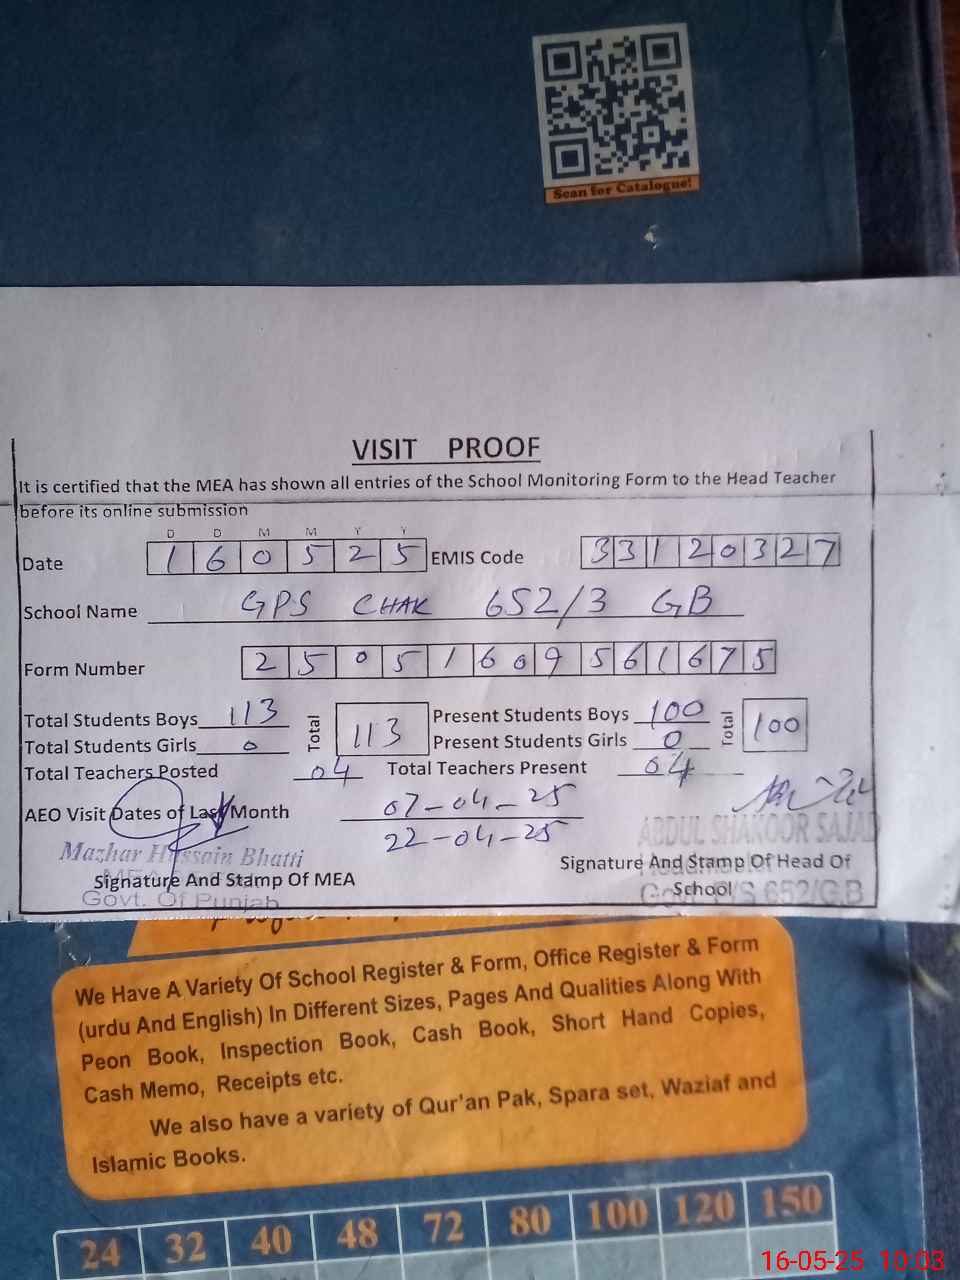 Scan for Catalogue!
VISIT PROOF
It is certified that the MEA has shown all entries of the School Monitoring Form to the Head Teacher
before its online submission
D D M M Y Y
Date 1 6 0 5 2 5 EMIS Code 3 3 1 2 0 3 2 7
School Name GPS CHAK 652/3 GB
Form Number 2 5 0 5 1 6 0 9 5 6 1 6 7 5
Total Students Boys 113 Total 113 Present Students Boys 100 Total 100
Total Students Girls 0 Present Students Girls 0
Total Teachers Posted 04 Total Teachers Present 04
AEO Visit Dates of Last Month 07-04-25
22-04-25
ABDUL SHAKOOR SAJAD
Mazhar Hussain Bhatti
Signature And Stamp Of Head Of
School
Signature And Stamp Of MEA
Govt. Of Punjab
652/GB
We Have A Variety Of School Register & Form, Office Register & Form
(urdu And English) In Different Sizes, Pages And Qualities Along With
Peon Book, Inspection Book, Cash Book, Short Hand Copies,
Cash Memo, Receipts etc.
We also have a variety of Qur'an Pak, Spara set, Waziaf and
Islamic Books.
24 32 40 48 72 80 100 120 150
16-05-25 10:03